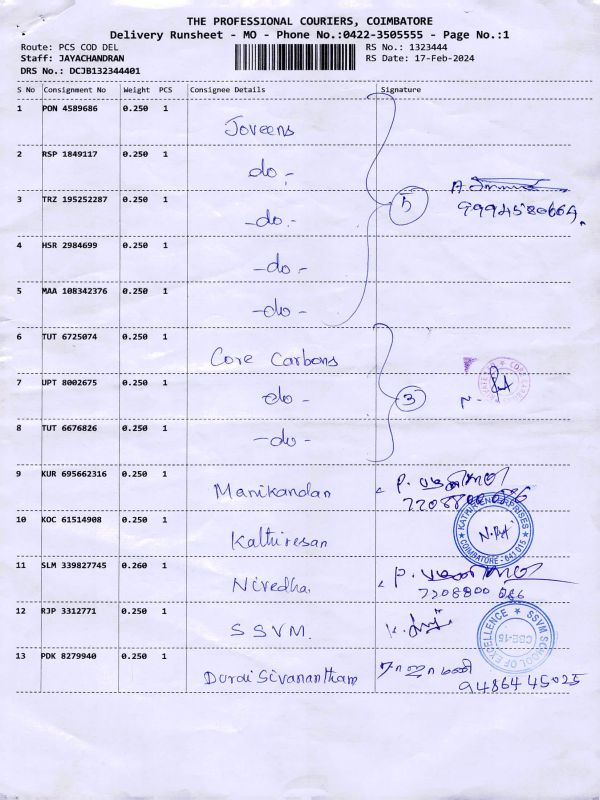 THE PROFESSIONAL COURIERS, COIMBATORE
Delivery Runsheet - MO - Phone No.:0422-3505555 - Page No.:1
Route: PCS COD DEL RS No.: 1323444
Staff: JAYACHANDRAN RS Date: 17-Feb-2024
DRS No.: DCJB132344401
S No Consignment No Weight PCS Consignee Details Signature
1 PON 4589686 0.250 1 Joveens
2 RSP 1849117 0.250 1 do.-
3 TRZ 195252287 0.250 1 -do.- 5 9994580669
4 HSR 2984699 0.250 1 -do.-
5 MAA 108342376 0.250 1 -do-
6 TUT 6725074 0.250 1 Core Carbons
7 UPT 8002675 0.250 1 do- 3
8 TUT 6676826 0.250 1 -do-
9 KUR 695662316 0.250 1 Manikandan
10 KOC 61514908 0.250 1 Kathiresan COIMBATORE - 641 015
11 SLM 339827745 0.260 1 Nivedha 7208800 266
12 RJP 3312771 0.250 1 SSVM. SSVM SCHOOL OF EXCELLENCE CBE-15
13 PDK 8279940 0.250 1 Durai Sivanantham ராஜாமணி
9486445025